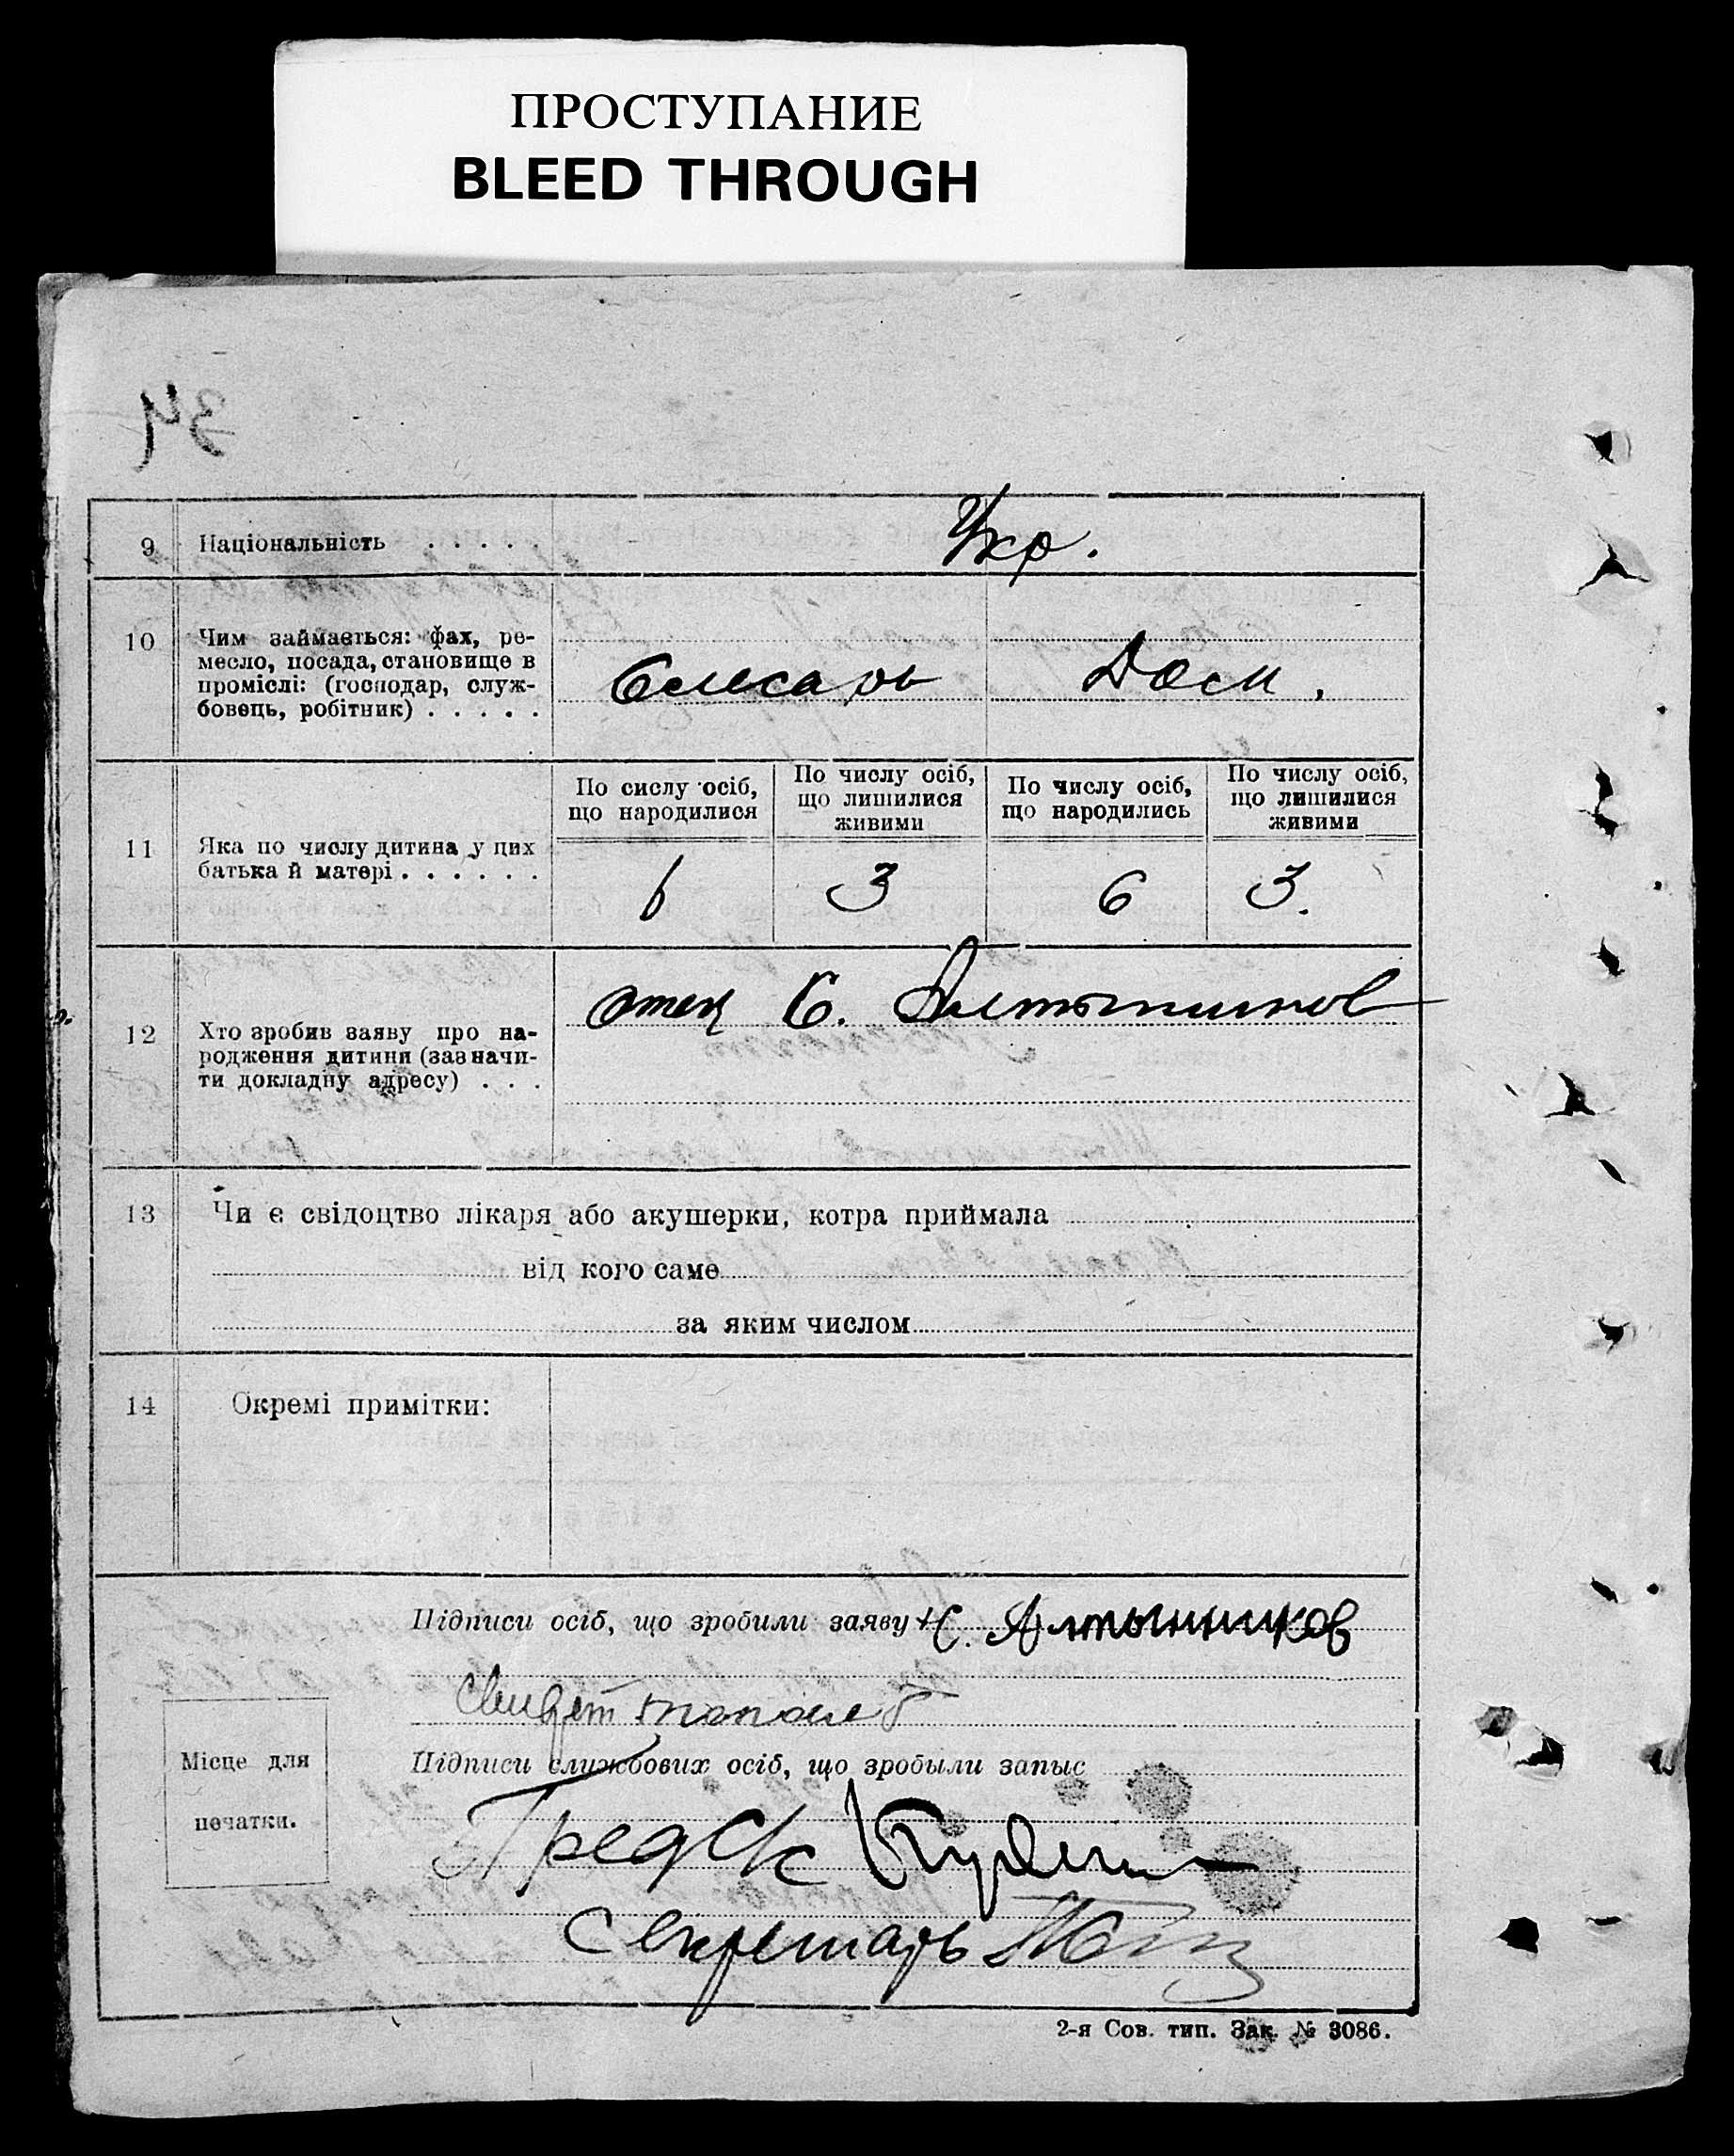 ПРОСТУПАНИЕ
BLEED THROUGH
34
9 Національність . . . .
Укр.
10 Чим займається: фах, ре-
месло, посада, становище в
проміслі: (господар, служ-
бовець, робітник) . . . . .
Слесарь Дом.
11 Яка по числу дитина у цих
батька й матері . . . . . .
По сислу осіб,
що народилися
По числу осіб,
що лишилися
живими
По числу осіб,
що народились
По числу осіб,
що лишилися
живими
6 3 6 3.
12 Хто зробив заяву про на-
родження дитини (зазначи-
ти докладну адресу) . . .
отец С. Алтынников
13 Чи є свідоцтво лікаря або акушерки, котра приймала
від кого саме
за яким числом
14 Окремі примітки:
Підписи осіб, що зробили заяву С. Алтынников
Підписи службових осіб, що зробыли запыс
Місце для
печатки.
Предс/с
Секретарь
2-я Сов. тип. Зак. № 3086.